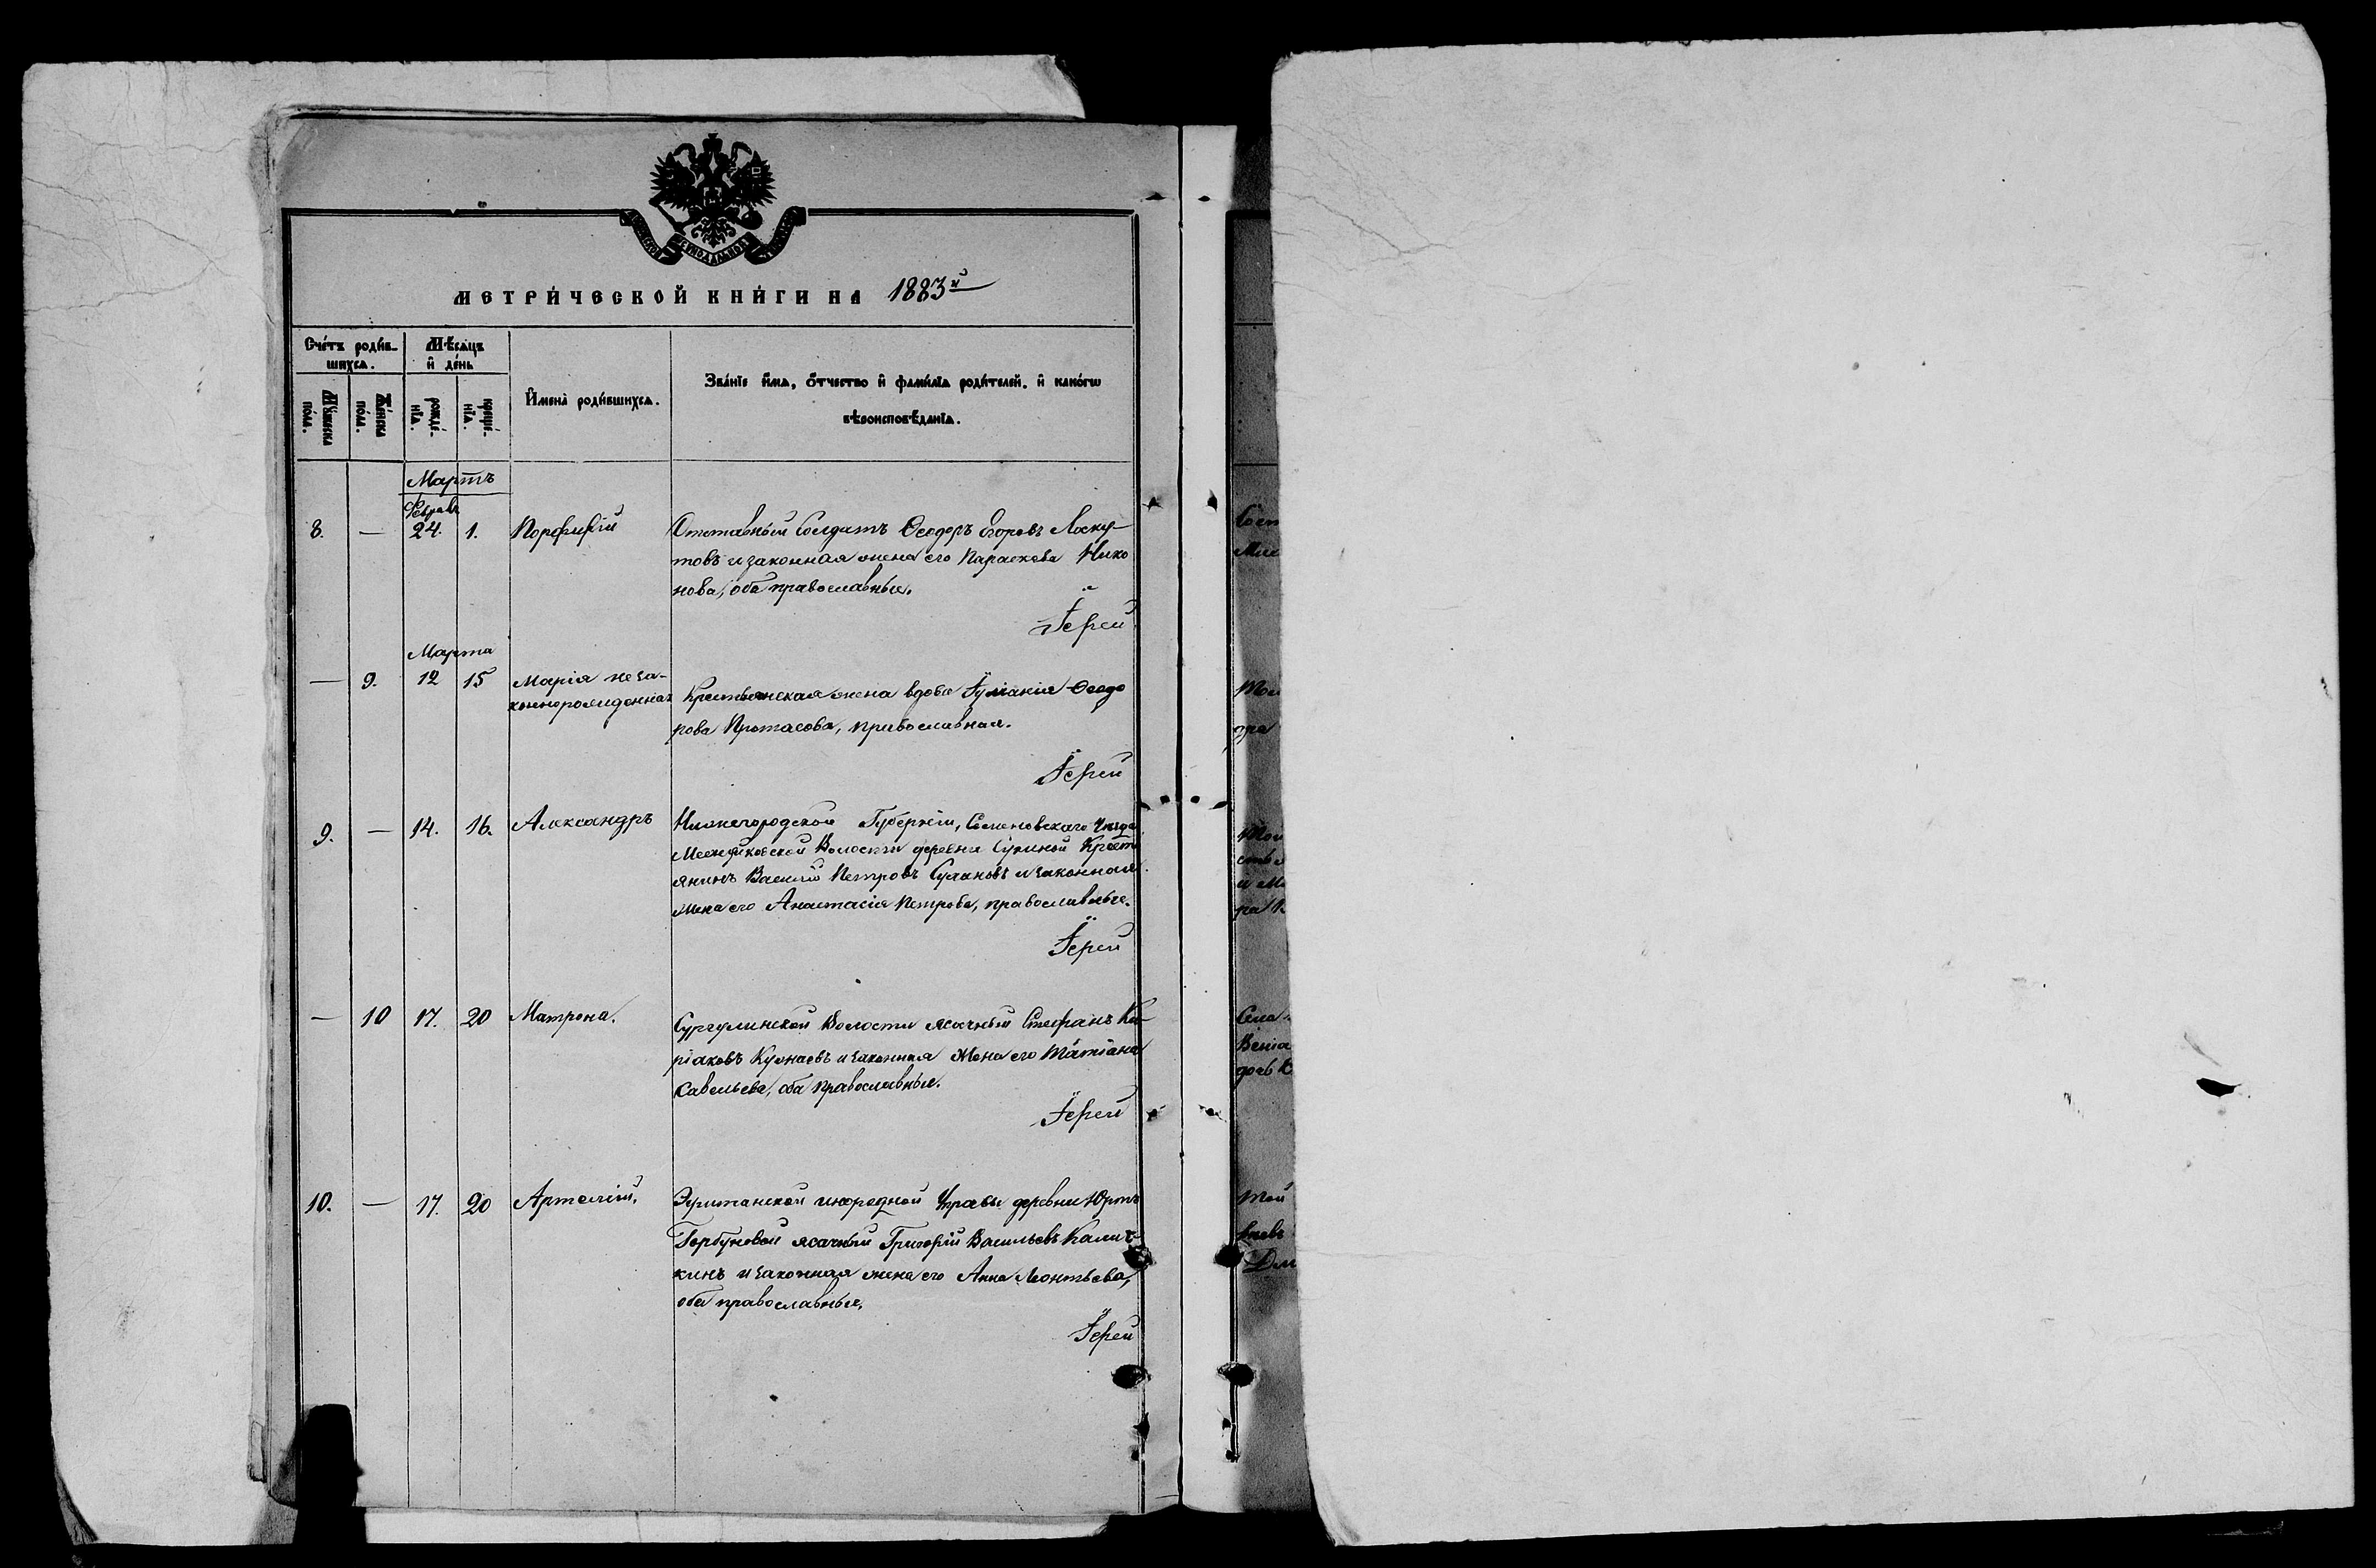 СѴНОДАЛЬНОЙ
МЕТРИ́ЧЕСКОЙ КНИ́ГИ НА 1883й
Сче́тъ роди́в-
шихсѧ.
Мѣ́сѧцъ
и҆ де́нь
Мꙋ́жеска
по́ла.
Же́нска
по́ла.
рожде́-
нїѧ.
креще́-
нїѧ.
И҆мена̀ роди́вшихсѧ.
Зва́нїе и҆́мѧ, ѻ҆́тчество и҆ фами́лїѧ роди́телей, и҆ како́гѡ
вѣроисповѣ́данїѧ.
Мартъ
Февраль
8. — 24. 1. Порфирій
Отставный Солдатъ Ѳеодоръ Егоровъ Лоску-
товъ и законная жена его Параскева Нико
нова, оба православные.
Іерей
Марта
— 9. 12 15 Марія неза-
коннорожденная
Крестьянская жена вдова Ѳеодо
рова Протасова, православная.
Іерей
9. — 14. 16. Александръ
Нижегородской Губерніи, Семеновскаго Уѣзда
Волости деревни Крестъ
янинъ Василій Петровъ и законная
жена его Анастасія Петрова, православные.
Іерей
— 10 17. 20 Матрона.
Волости ясачный Стефанъ Ки-
ріаковъ и законная жена его Татіана
Савельева, оба православные.
Іерей
10. — 17. 20 Артемій.
инородной Управы деревни Юртъ
Горбуновой ясачный Григорій Васильевъ Калич-
кинъ и законная жена его Анна Леонтьева,
оба православные.
Іерей